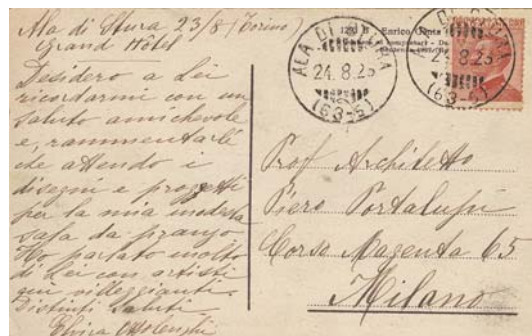 Ala di Stura 23/8 (Torino)
Grand Hôtel
Desidero a Lei
ricordarmi con un
saluto amichevole
e, rammentarle
che attendo i
disegni e progetti
per la mia modesta
sala da pranzo
Ho parlato molto
di Lei con artisti
qui villeggianti.
Distinti saluti
Elvira Ottolenghi
Enrico
ALA DI STURA
24.8.25
(63-5)
ALA DI STURA
24.8.25
(63-5)
Prof Architetto
Piero Portaluppi
Corso Magenta 65
Milano